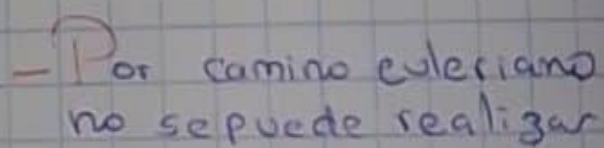 - Por camino euleriano
no sepuede realizar